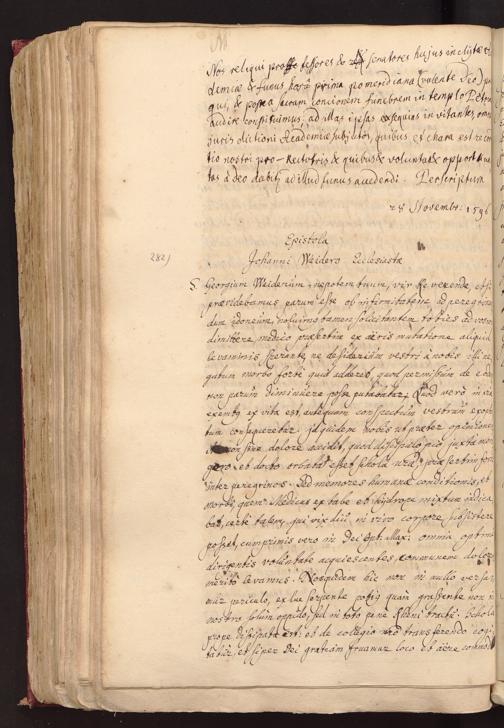 Nos reliqui professores & senatores hujus inclytae
demiae & funus hora prima pomeridiana (volente Deo)
qui, & postea sacram concionem funebrem in templo Petri
audire constituimus: ad illas ipsas exsequias invitantes, omn
juris dictioni Academicae subjectos, quibus est chara est re
tio nostri pro-Rectoris & quibus & voluntas & opportun
tas a Deo dabit, ad illud funus accedendi. Perscriptum
28 Novembr: 1596
Epistola
282)
Johanni Weidero Ecclesiastae
S. Georgium Weiderum, nepotem tuum, vir Reverende, etsi
praevidebamus parum esse ob infirmitatem ad peregrinan
dum idoneum, noluimus tamen solicitantem toties ad vos
dimittere, medico praesertim ex aeris mutatione aliquid
levaminis sperante, ne desiderium vestri a nobis
gatum morbo forte quid adderet, quod permissum de eo
non parum diminuere posse putabatur. Quod vero in
exemptus ex vita est, antequam conspectum vestrum
tum consequeretur, id quidem nobis ut praeter opinionem
non sine dolore accidit, quod discipulo pio juxta
gero et docto orbata esset schola nostra, praesertim
inter peregrinos. Sed memores humanae conditionis, et
morbi, quem Medicus ex tabe et hydrope mixtum indica
bat, certe talem, qui vix diu in vivo corpore subsistere
posset, cumprimis vero in Dei Opt. Max: omnia optime
dirigentis voluntate acquiescentes, communem dolor
merito levamus. Nos quidem hic non in nullo versa
mur periculo, ex lue serpente potius quam grassante non in
nostro solum oppido, sed in toto pene Rheni tractu. Schola
prope dissipata est: et de collegio nostro transferendo cogi
tabitur, et super Dei gratiam fruamur loco et aere commodo